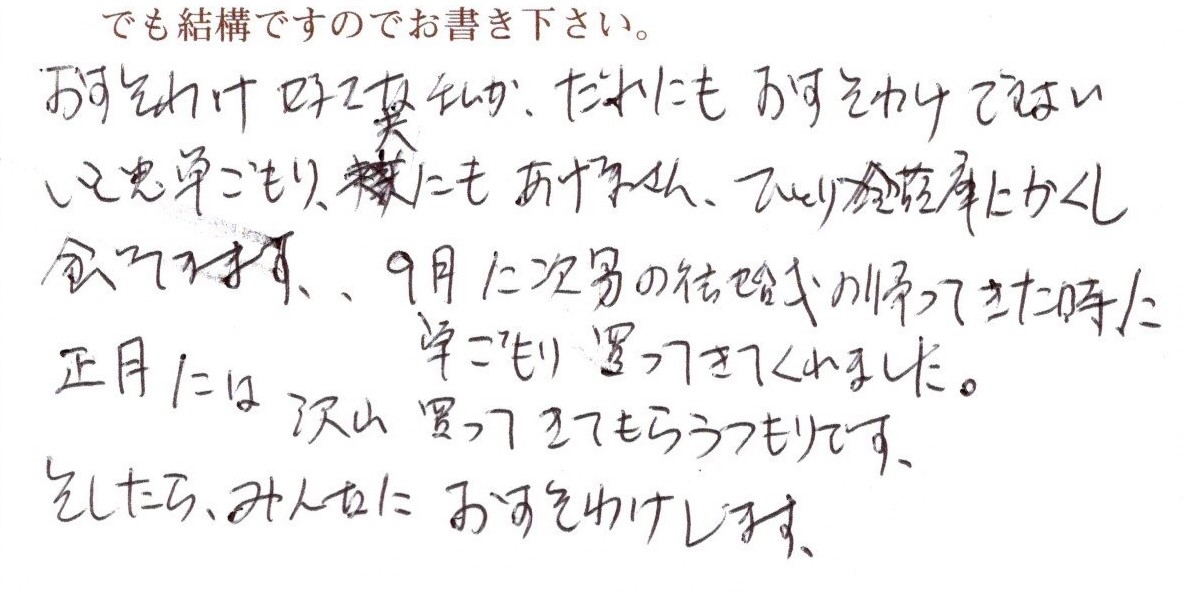 でも結構ですのでお書き下さい。
おすそわけ好きな私が、だれにもおすそわけできない
いと忠草ごもり、嫁にもあげません、ひとり冷蔵庫にかくし
食べてます、、9月に次男の結婚式の帰ってきた時に
草ごもり買ってきてくれました。
正月には沢山買ってきてもらうつもりです、
そしたら、みんなにおすそわけします、